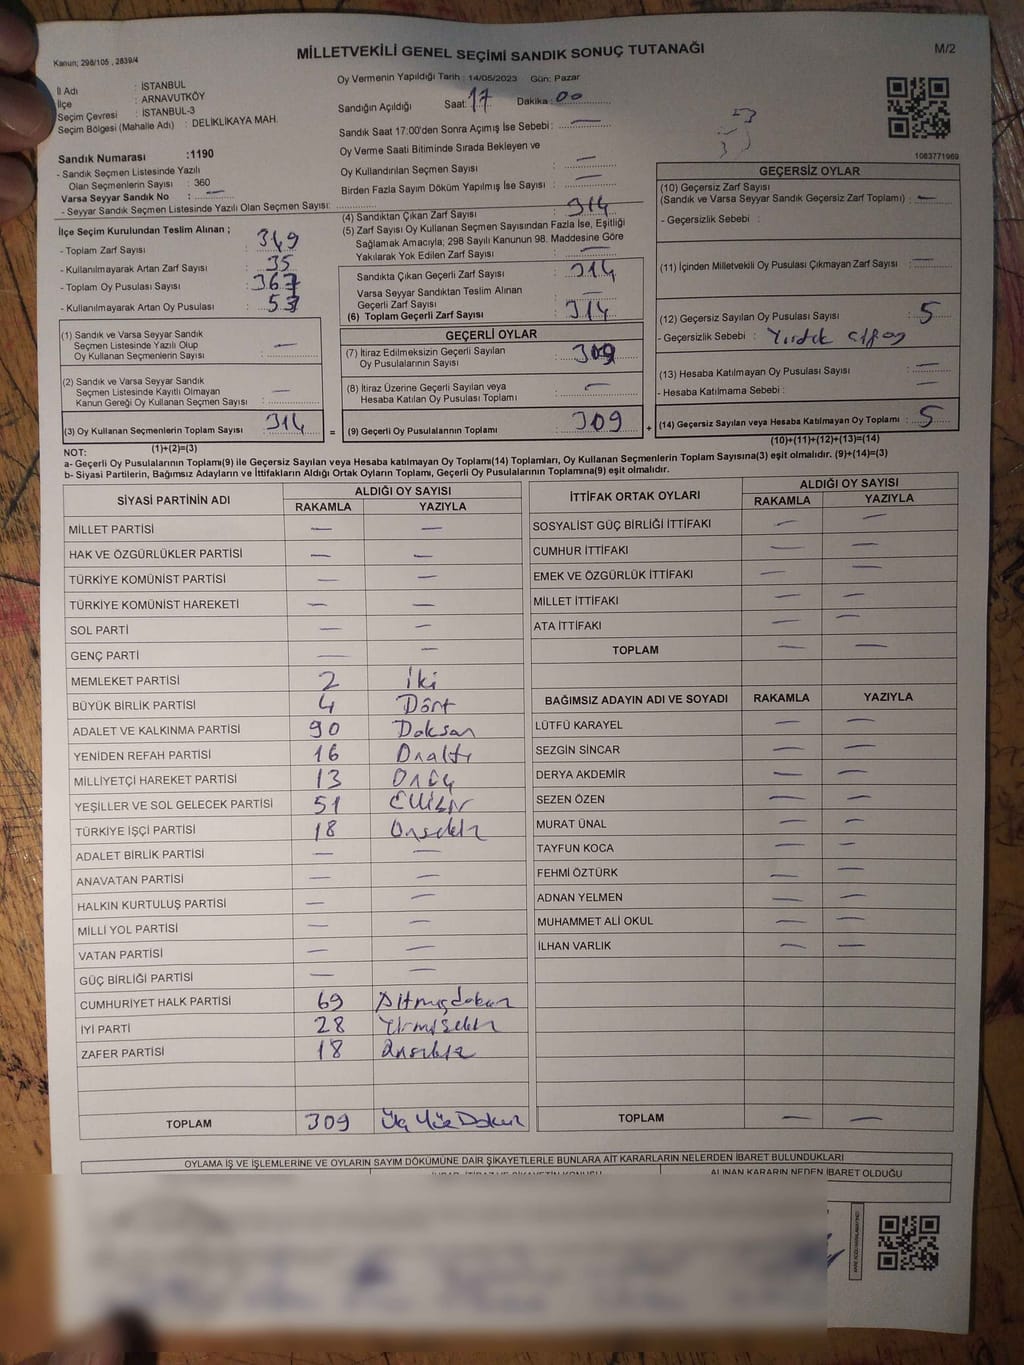 MİLLETVEKİLİ GENEL SEÇİMİ SANDIK SONUÇ TUTANAĞI
M/2
Kanun; 298/105 , 2839/4
İl Adı : İSTANBUL
İlçe : ARNAVUTKÖY
Seçim Çevresi : İSTANBUL-3
Seçim Bölgesi (Mahalle Adı) : DELİKLİKAYA MAH.
Oy Vermenin Yapıldığı Tarih : 14/05/2023 Gün: Pazar
Sandığın Açıldığı Saat: 17 Dakika : 00
Sandık Saat 17:00'den Sonra Açımış İse Sebebi : —
Oy Verme Saati Bitiminde Sırada Bekleyen ve
Oy Kullandırılan Seçmen Sayısı —
Birden Fazla Sayım Döküm Yapılmış İse Sayısı : —
1083771969
Sandık Numarası :1190
- Sandık Seçmen Listesinde Yazılı
Olan Seçmenlerin Sayısı : 360
Varsa Seyyar Sandık No : —
- Seyyar Sandık Seçmen Listesinde Yazılı Olan Seçmen Sayısı:
İlçe Seçim Kurulundan Teslim Alınan ;
- Toplam Zarf Sayısı : 349
- Kullanılmayarak Artan Zarf Sayısı : 35
- Toplam Oy Pusulası Sayısı : 367
- Kullanılmayarak Artan Oy Pusulası : 53
(1) Sandık ve Varsa Seyyar Sandık
Seçmen Listesinde Yazılı Olup
Oy Kullanan Seçmenlerin Sayısı : —
(2) Sandık ve Varsa Seyyar Sandık
Seçmen Listesinde Kayıtlı Olmayan
Kanun Gereği Oy Kullanan Seçmen Sayısı : —
(3) Oy Kullanan Seçmenlerin Toplam Sayısı : 314
(1)+(2)=(3)
(4) Sandıktan Çıkan Zarf Sayısı : 314
(5) Zarf Sayısı Oy Kullanan Seçmen Sayısından Fazla İse, Eşitliği
Sağlamak Amacıyla; 298 Sayılı Kanunun 98. Maddesine Göre
Yakılarak Yok Edilen Zarf Sayısı : —
Sandıkta Çıkan Geçerli Zarf Sayısı : 314
Varsa Seyyar Sandıktan Teslim Alınan
Geçerli Zarf Sayısı : —
(6) Toplam Geçerli Zarf Sayısı : 314
GEÇERLİ OYLAR
(7) İtiraz Edilmeksizin Geçerli Sayılan
Oy Pusulalarının Sayısı : 309
(8) İtiraz Üzerine Geçerli Sayılan veya
Hesaba Katılan Oy Pusulaları Toplamı : —
= (9) Geçerli Oy Pusulalarının Toplamı : 309
GEÇERSİZ OYLAR
(10) Geçersiz Zarf Sayısı
(Sandık ve Varsa Seyyar Sandık Geçersiz Zarf Toplamı) : —
- Geçersizlik Sebebi :
(11) İçinden Milletvekili Oy Pusulası Çıkmayan Zarf Sayısı : —
(12) Geçersiz Sayılan Oy Pusulası Sayısı : 5
- Geçersizlik Sebebi : Yırtık
(13) Hesaba Katılmayan Oy Pusulası Sayısı : —
- Hesaba Katılmama Sebebi : —
+ (14) Geçersiz Sayılan veya Hesaba Katılmayan Oy Toplamı : 5
(10)+(11)+(12)+(13)=(14)
NOT:
a- Geçerli Oy Pusulalarının Toplamı(9) ile Geçersiz Sayılan veya Hesaba katılmayan Oy Toplamı(14) Toplamları, Oy Kullanan Seçmenlerin Toplam Sayısına(3) eşit olmalıdır. (9)+(14)=(3)
b- Siyasi Partilerin, Bağımsız Adayların ve İttifakların Aldığı Ortak Oyların Toplamı, Geçerli Oy Pusulalarının Toplamına(9) eşit olmalıdır.
SİYASİ PARTİNİN ADI ALDIĞI OY SAYISI
RAKAMLA YAZIYLA
MİLLET PARTİSİ — —
HAK VE ÖZGÜRLÜKLER PARTİSİ — —
TÜRKİYE KOMÜNİST PARTİSİ — —
TÜRKİYE KOMÜNİST HAREKETİ — —
SOL PARTİ — —
GENÇ PARTİ — —
MEMLEKET PARTİSİ 2 İki
BÜYÜK BİRLİK PARTİSİ 4 Dört
ADALET VE KALKINMA PARTİSİ 90 Doksan
YENİDEN REFAH PARTİSİ 16 Onaltı
MİLLİYETÇİ HAREKET PARTİSİ 13 Onüç
YEŞİLLER VE SOL GELECEK PARTİSİ 51 Ellibir
TÜRKİYE İŞÇİ PARTİSİ 18 Onsekiz
ADALET BİRLİK PARTİSİ — —
ANAVATAN PARTİSİ — —
HALKIN KURTULUŞ PARTİSİ — —
MİLLİ YOL PARTİSİ — —
VATAN PARTİSİ — —
GÜÇ BİRLİĞİ PARTİSİ — —
CUMHURİYET HALK PARTİSİ 69 Altmışdokuz
İYİ PARTİ 28 Yirmisekiz
ZAFER PARTİSİ 18 Onsekiz
TOPLAM 309 Üç Yüz Dokuz
İTTİFAK ORTAK OYLARI ALDIĞI OY SAYISI
RAKAMLA YAZIYLA
SOSYALİST GÜÇ BİRLİĞİ İTTİFAKI — —
CUMHUR İTTİFAKI — —
EMEK VE ÖZGÜRLÜK İTTİFAKI — —
MİLLET İTTİFAKI — —
ATA İTTİFAKI — —
TOPLAM — —
BAĞIMSIZ ADAYIN ADI VE SOYADI RAKAMLA YAZIYLA
LÜTFÜ KARAYEL — —
SEZGİN SİNCAR — —
DERYA AKDEMİR — —
SEZEN ÖZEN — —
MURAT ÜNAL — —
TAYFUN KOCA — —
FEHMİ ÖZTÜRK — —
ADNAN YELMEN — —
MUHAMMET ALİ OKUL — —
İLHAN VARLIK — —
TOPLAM — —
OYLAMA İŞ VE İŞLEMLERİNE VE OYLARIN SAYIM DÖKÜMÜNE DAİR ŞİKAYETLERLE BUNLARA AİT KARARLARIN NELERDEN İBARET BULUNDUKLARI
ALINAN KARARIN NEDEN İBARET OLDUĞU